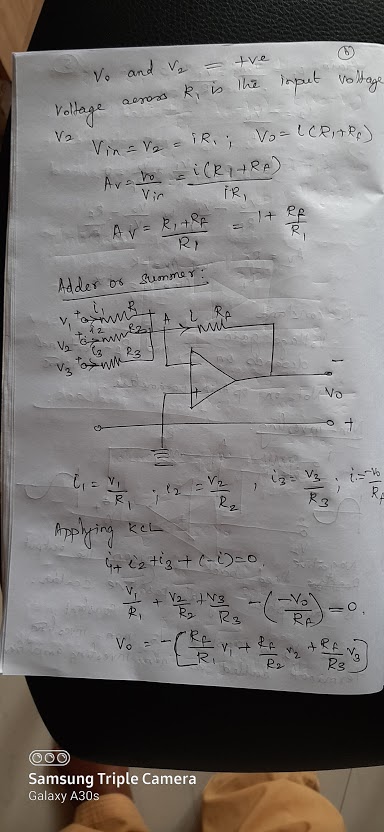 (6)
V₀ and V₂ = +ve
Voltage across R₁ is the input voltage
V₂
Vin = V₂ = iR₁ ; V₀ = i(R₁+Rf)
Av = V₀/Vin = i(R₁+Rf)/iR₁
Av = (R₁+Rf)/R₁ = 1 + Rf/R₁
Adder or Summer:
V₁ + i₁ R₁ A i Rf
V₂ + i₂ R₂
V₃ + i₃ R₃
−
V₀
+
i₁ = V₁/R₁ ; i₂ = V₂/R₂ , i₃ = V₃/R₃ ; i = -V₀/Rf
Applying KCL
i₁+ i₂+i₃ + (-i)=0.
V₁/R₁ + V₂/R₂ + V₃/R₃ - (-V₀/Rf) = 0.
V₀ = - [Rf/R₁ V₁ + Rf/R₂ V₂ + Rf/R₃ V₃]
Samsung Triple Camera
Galaxy A30s